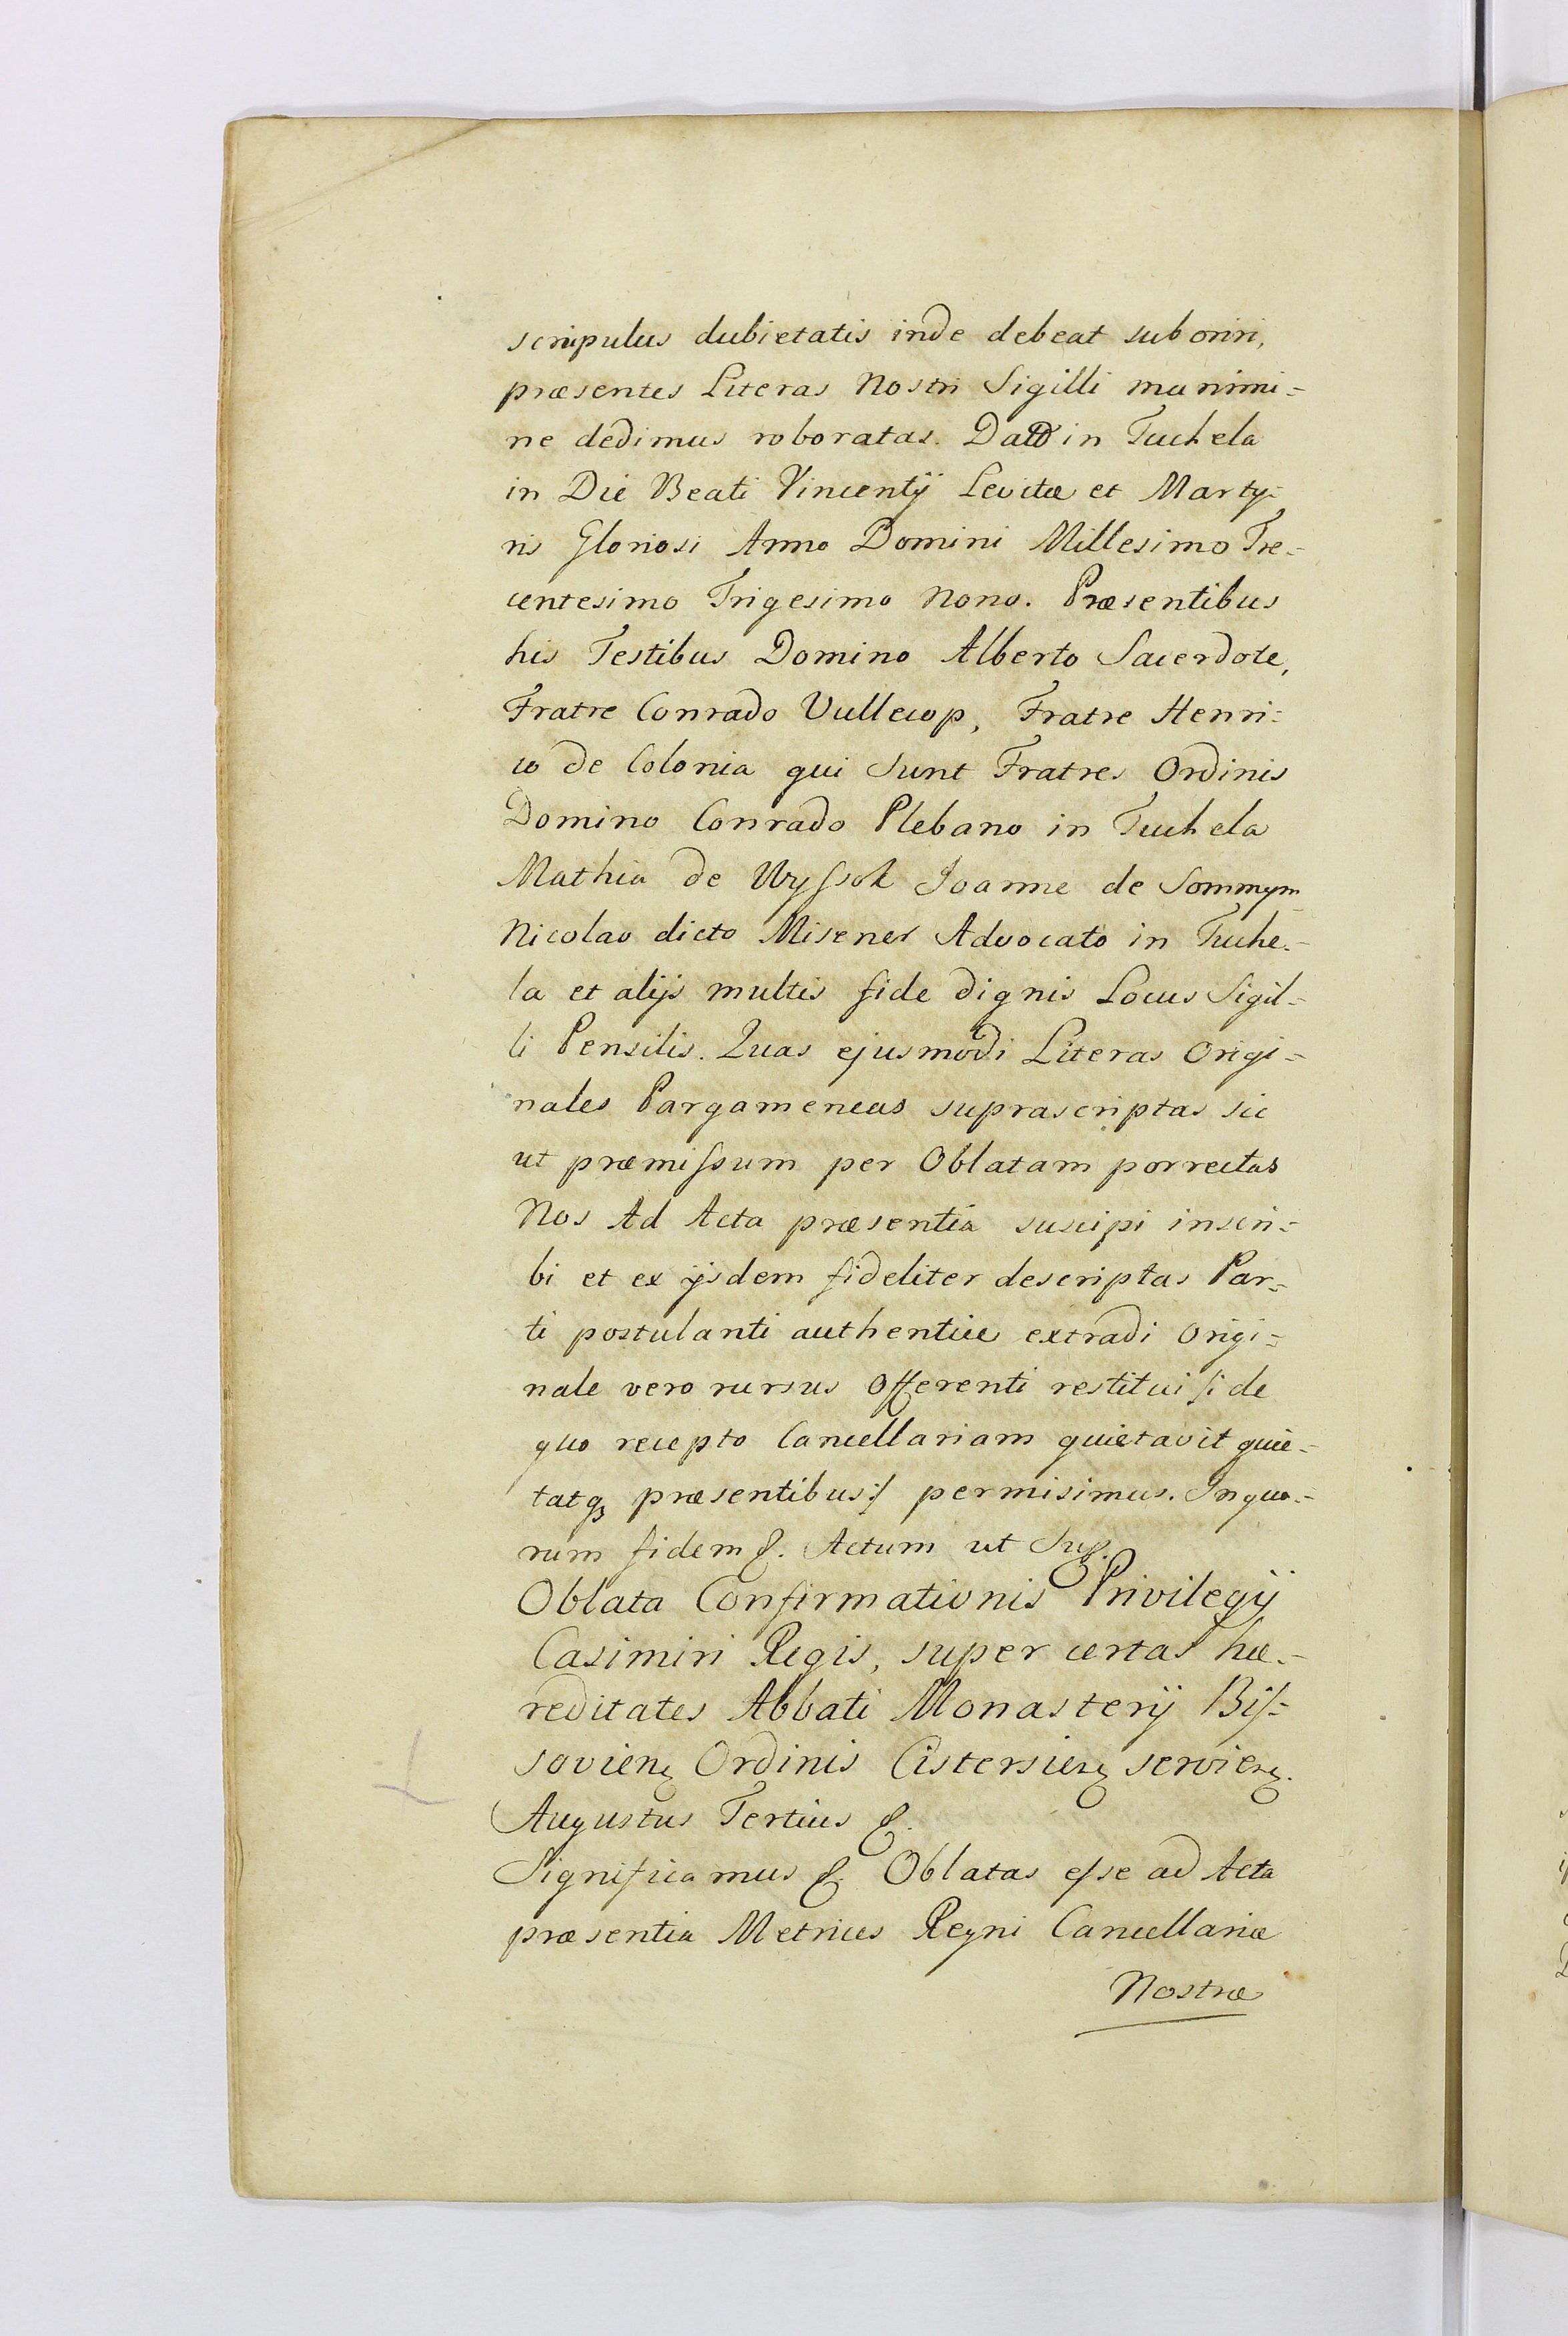 scrupulus dubietatis inde debeat suboriri,
præsentes Literas Nostri Sigilli munimi-
ne dedimus roboratas. Datt in Tuchela
in Die Beati Vincentÿ Levitæ et Marty-
ris Gloriosi Anno Domini Millesimo Tre-
centesimo Trigesimo Nono. Præsentibus
his Testibus Domino Alberto Sacerdote,
Fratre Conrado Vullecop, Fratre Henri-
co de Colonia qui Sunt Fratres Ordinis
Domino Conrado Plebano in Tuchela
Mathia de Wyssok Joanne de Sommym
Nicolao dicto Misener Advocato in Tuche-
la et alijs multis fide dignis Locus Sigil-
li Pensilis. Quas ejusmodi Literas Origi-
nales Pargameneas suprascriptas sic
ut præmissum per Oblatam porrectas
Nos Ad Acta præsentia suscipi inscri-
bi et ex ijsdem fideliter descriptas Par-
ti postulanti authentice extradi Origi-
nale vero rursus Offerenti restitui /: de
quo recepto Cancellariam quietavit quie-
tatq præsentibus :/ permisimus. In quo-
rum fidem &. Actum ut Sup.
Oblata Confirmationis Privilegij
Casimiri Regis, super certas hæ-
reditates Abbati Monasterÿ Bis-
sovien Ordinis Cistersien servien.
Augustus Tertius &.
Significamus &. Oblatas esse ad Acta
præsentia Metrices Regni Cancellariæ
Nostræ